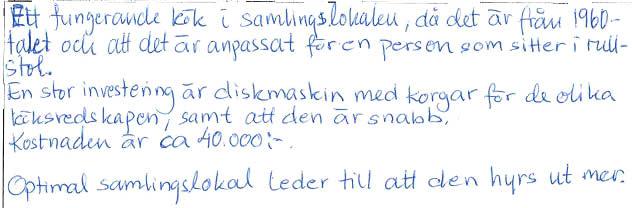 Ett fungerande kök i samlingslokalen, då det är från 1960-
talet och att det är anpassat för en person som sitter i rull-
stol.
En stor investering är diskmaskin med korgar för de olika
köksredskapen, samt att den är snabb.
Kostnaden är ca 40.000:-.
Optimal samlingslokal leder till att den hyrs ut mer.